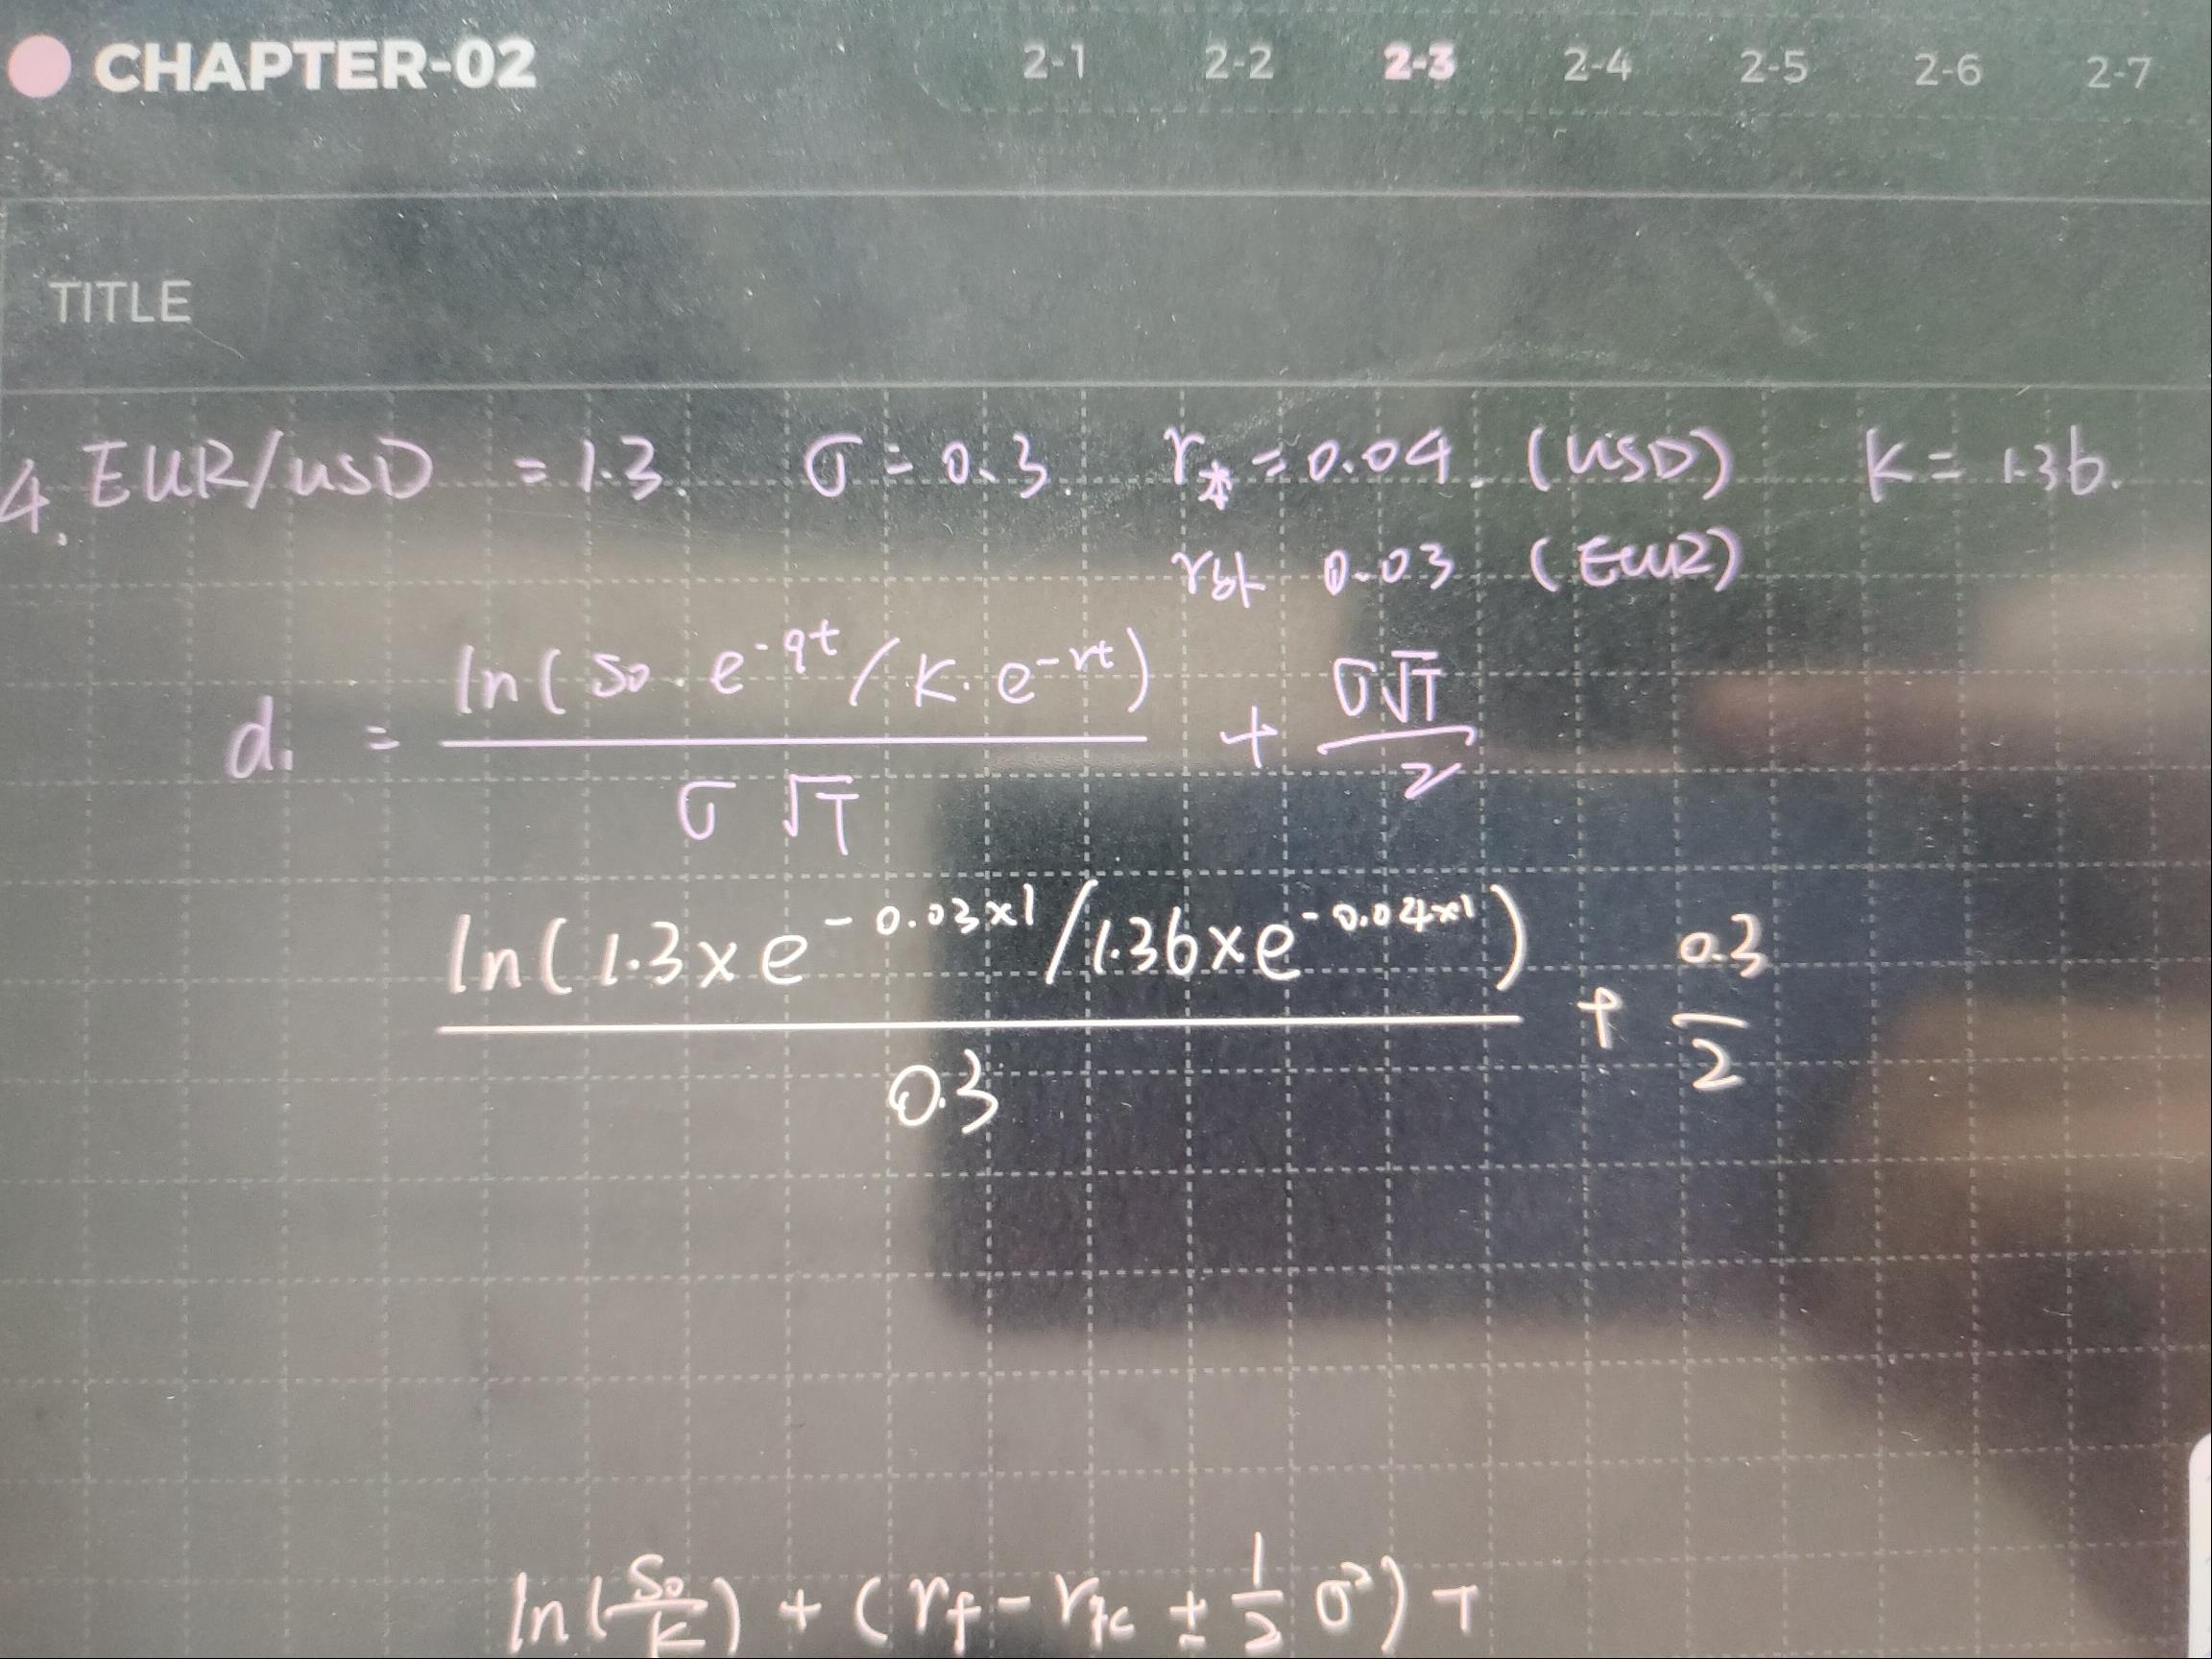 CHAPTER-02 2-1 2-2 2-3 2-4 2-5 2-6 2-7
TITLE
4. EUR/USD = 1.3 σ = 0.3 r_本 = 0.04 (USD) K = 1.36.
r_外 0.03 (EUR)
d₁ = ln(S₀·e^-qt / K·e^-rt) / σ√T + σ√T / 2
ln(1.3×e^-0.03×1 / 1.36×e^-0.04×1) / 0.3 + 0.3 / 2
ln(S₀/K) + (r_f - r_fc ± 1/2 σ²) T